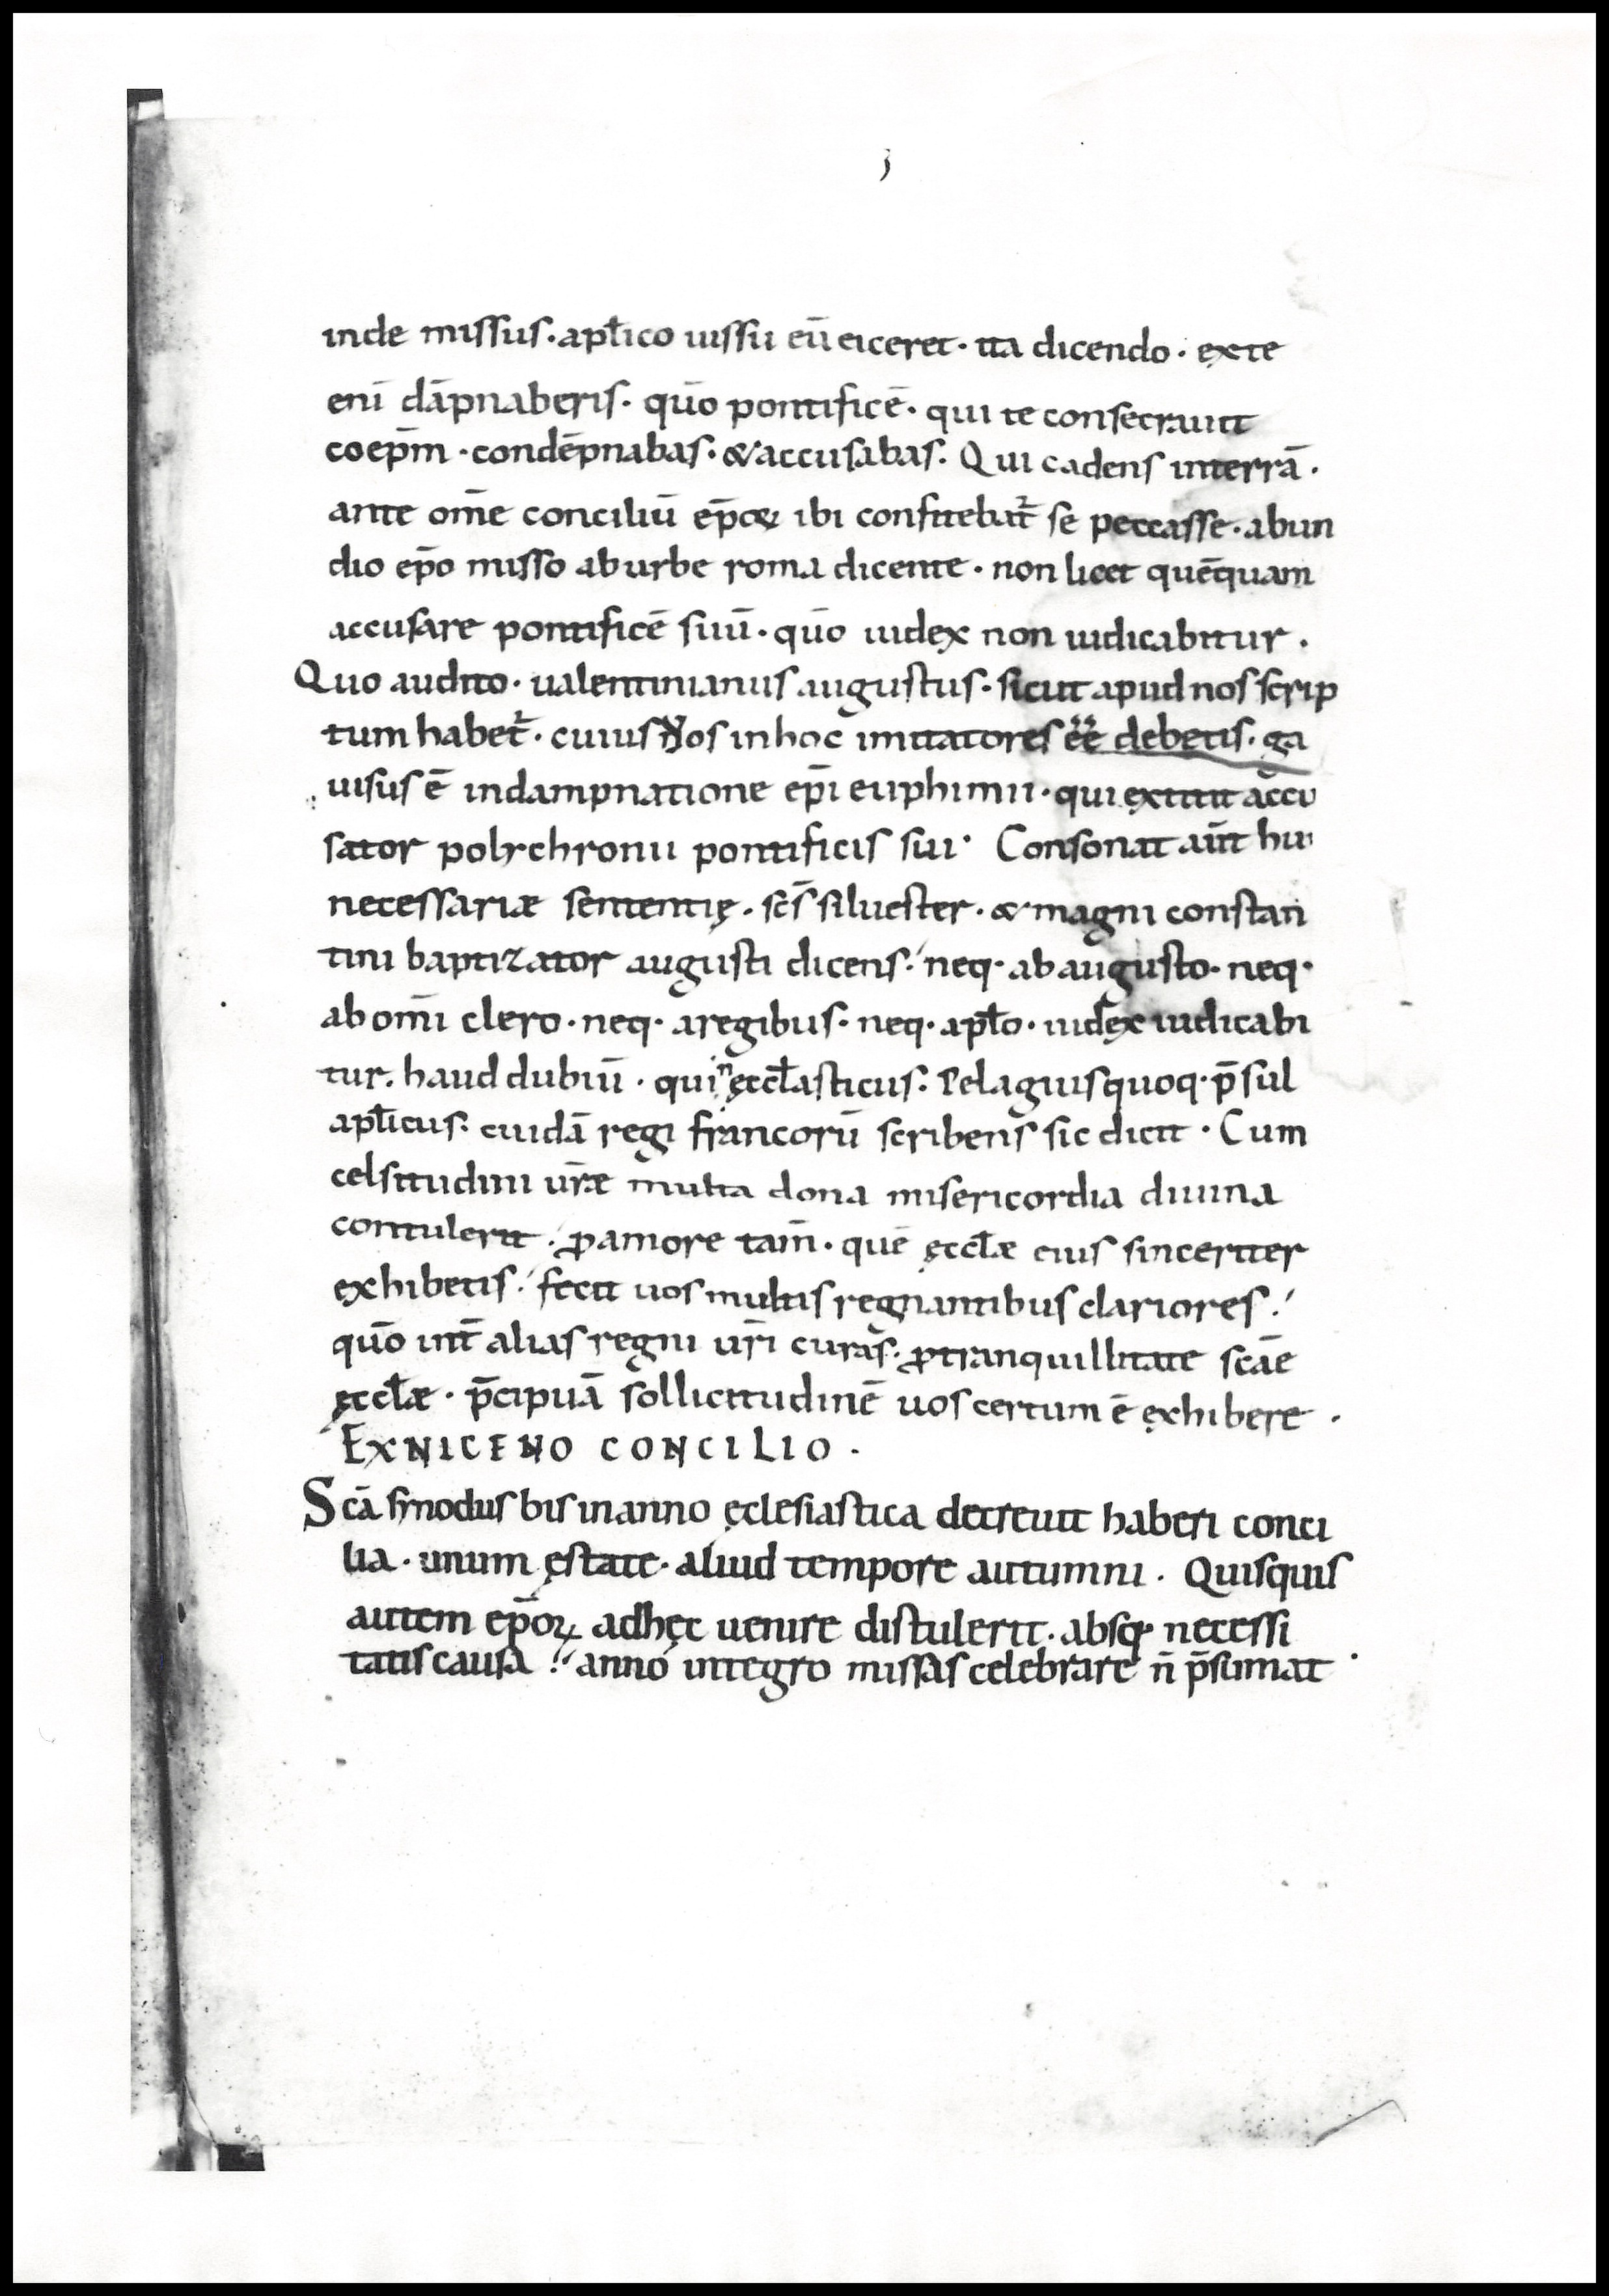 inde missus · apl̄ico iussu eū eiceret · ita dicendo · exte
eni̅ dāpnaberis · quō pontificē · qui te consecrauit
coep̄m · condēpnabas · & accusabas · Qui cadens interrā ·
ante om̄e conciliū ep̄oꝝ ibi confitebat᷑ se peccasse · abun
dio ep̄o misso ab urbe roma dicente · non licet quēquam
accusare pontificē suū · quō iudex non iudicabitur ·
Quo audito · ualentinianus augustus · sicut apud nos scrip
tum habet᷑ · cuius Nos in hoc imitatores ēē debetis · ga
uisus ē indampnatione ep̄i euphimii · qui extitit accu
sator polychronii pontificis sui · Consonat aūt hui
necessariæ sententię · sc̄s siluester · & magni constan
tini baptizator augusti dicens · neq· ab augusto · neq·
ab om̄i clero · neq· a regibus · neq· apl̄o · iudex iudicabi
tur · haud dubiū · quin ęccl̄asticus · Pelagius quoq· p̄sul
apl̄icus · cuidā regi francorū scribens sic dicit · Cum
celsitudini ur̄æ multa dona misericordia diuina
contulerit · ꝓ amore tam̄ · quē ęccl̄æ eius sinceriter
exhibetis · fecit uos multis regnantibus clariores ·
quō int̄ alias regni ur̄i curas · ꝓ tranquillitate sc̄æ
ęccl̄æ · p̄cipuā sollicitudinē uos certum ē exhibere ·
EX NICENO CONCILIO ·
Scā synodus bis in anno ęclesiastica decreuit haberi conci
lia · unum ęstate · aliud tempore autumni · Quisquis
autem ep̄oꝝ ad hęc uenire distulerit · absq· necessi
tatis causa · anno integro missas celebrare n̄ p̄sumat ·